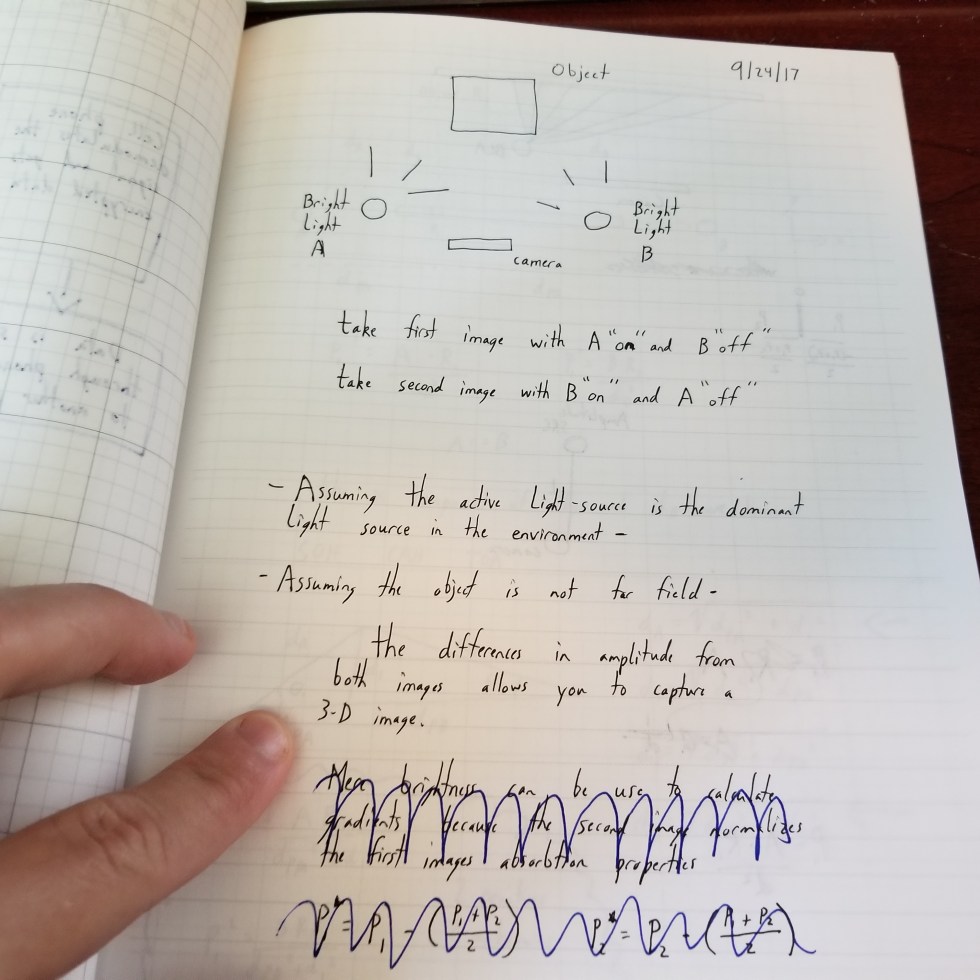 Object
9/24/17
Bright
Light
A
Bright
Light
B
camera
take first image with A "on" and B "off"
take second image with B "on" and A "off"
- Assuming the active Light-source is the dominant
Light source in the environment -
- Assuming the object is not far field -
the differences in amplitude from
both images allows you to capture a
3-D image.
brightness can be use to calculate
gradients because the second image normalizes
the first images absorbtion properties
P₁* = P₁ - (P₁ + P₂ / 2) P₂* = P₂ - (P₁ + P₂ / 2)